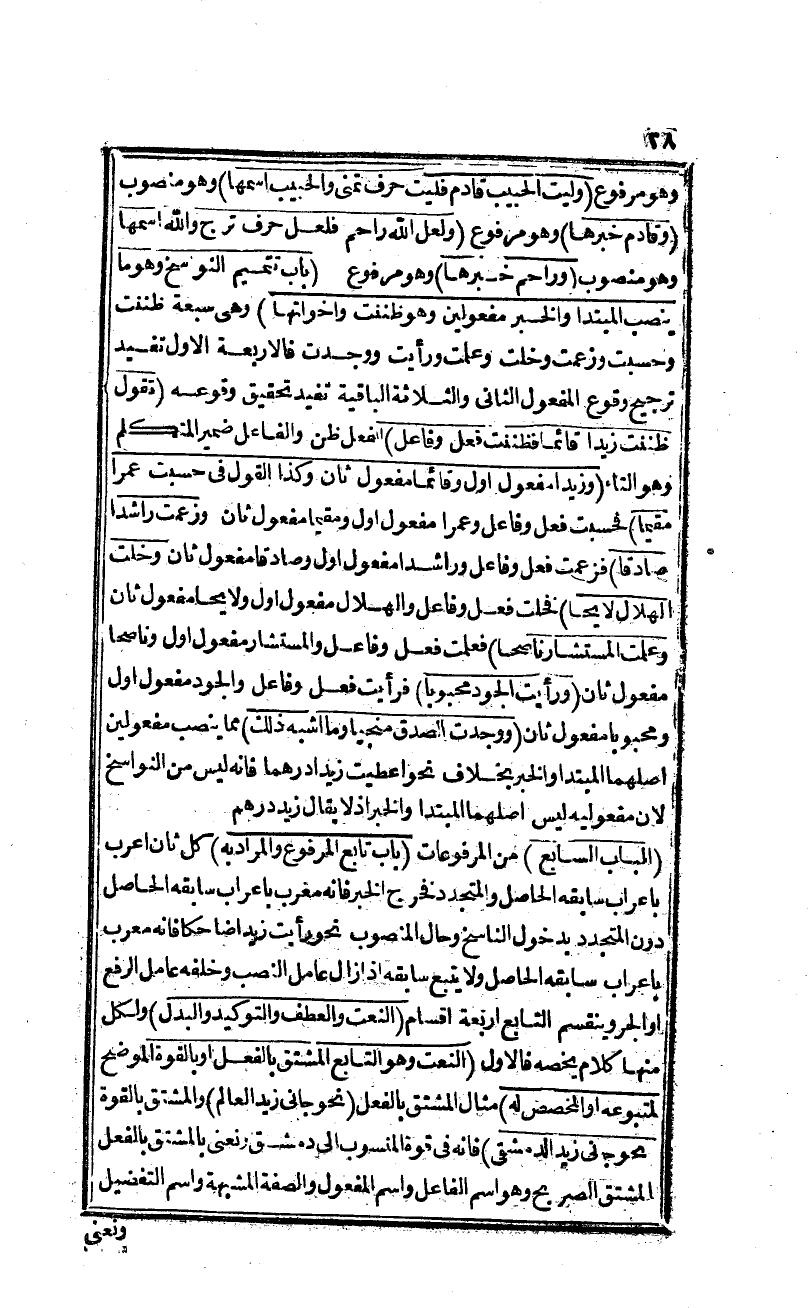 ٢٨
وهو مرفوع (وليت الحبيب قادم فليت حرف تمنى والحبيب اسمها) وهو منصوب
(وقادم خبرها) وهو مرفوع (ولعل الله راحم فلعل حرف ترج والله اسمها
وهو منصوب (وراحم خبرها) وهو مرفوع (باب تتميم النواسخ وهو ما
ينصب المبتدا والخبر مفعولين وهو ظننت واخواتها) وهى سبعة ظننت
وحسبت وزعمت وخلت وعلمت ورأيت ووجدت فالاربعة الاول تفيد
ترجيح وقوع المفعول الثانى والثلاثة الباقية تفيد تحقيق وقوعه (تقول
ظننت زيدا قائما فظننت فعل وفاعل) الفعل ظن والفاعل ضمير المتكلم
وهو التاء (وزيدا مفعول اول وقائما مفعول ثان وكذا القول فى حسبت عمرا
مقيما) فحسبت فعل وفاعل وعمرا مفعول اول ومقيما مفعول ثان وزعمت راشدا
صادقا) فزعمت فعل وفاعل وراشدا مفعول اول وصادقا مفعول ثان وخلت
الهلال لايحا) فخلت فعل وفاعل والهلال مفعول اول ولايحا مفعول ثان
وعلمت المستشار ناصحا) فعلمت فعل وفاعل والمستشار مفعول اول وناصحا
مفعول ثان (ورأيت الجود محبوبا) فرأيت فعل وفاعل والجود مفعول اول
ومحبوبا مفعول ثان (ووجدت الصدق منجيا وما اشبه ذلك) مما ينصب مفعولين
اصلهما المبتدا والخبر بخلاف نحو اعطيت زيدا درهما فانه ليس من النواسخ
لان مفعوليه ليس اصلهما المبتدا والخبر اذ لا يقال زيد درهم
(الباب السابع) من المرفوعات (باب تابع المرفوع والمراد به) كل ثان اعرب
باعراب سابقه الحاصل والمتجدد فخرج الخبر فانه مغرب باعراب سابقه الحاصل
دون المتجدد بدخول الناسخ وحال المنصوب نحو رأيت زيدا ضاحكا فانه معرب
باعراب سابقه الحاصل ولا يتبع سابقه اذا زال عامل النصب وخلفه عامل الرفع
او الجر وينقسم التابع اربعة اقسام (النعت والعطف والتوكيد والبدل) ولكل
منها كلام يخصه فالاول (النعت وهو التابع المشتق بالفعل او بالقوة الموضح
لمتبوعه او المخصص له) مثال المشتق بالفعل (نحو جانى زيد العالم) والمشتق بالقوة
نحو جانى زيد الدمشقى) فانه فى قوة المنسوب الى دمشق ونعنى بالمشتق بالفعل
المشتق الصريح وهو اسم الفاعل واسم المفعول والصفة المشبهة واسم التفضيل
ونعنى